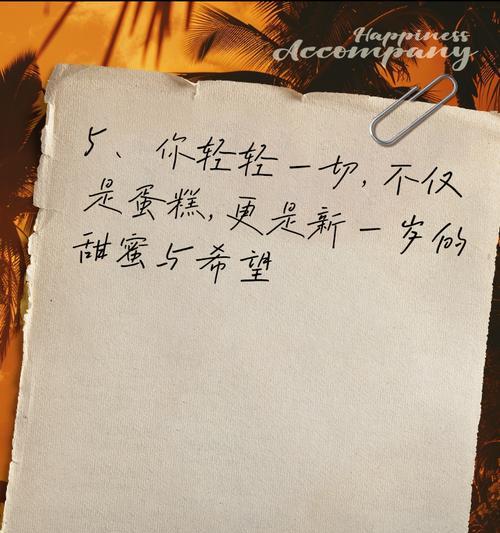 Happiness
Accompany
5、你轻轻一切,不仅
是蛋糕,更是新一岁的
甜蜜与希望